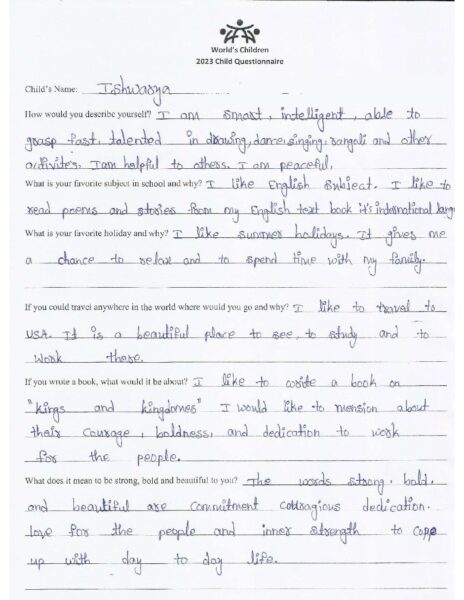 World's Children
2023 Child Questionnaire
Child's Name: Ishwarya
How would you describe yourself? I am smart, intelligent, able to
grasp fast, talented in drawing, dance, singing, rangoli and other
activites. I am helpful to others. I am peaceful.
What is your favorite subject in school and why? I like English subject. I like to
read poems and stories from my English text book it's international
What is your favorite holiday and why? I like summer holidays. It gives me
a chance to relax and to spend time with my family.
If you could travel anywhere in the world where would you go and why? I like to travel to
USA. It is a beautiful place to see, to study and to
work there.
If you wrote a book, what would it be about? I like to write a book on
"kings and kingdomes" I would like to mension about
their courage, boldness, and dedication to work
for the people.
What does it mean to be strong, bold and beautiful to you? The words strong, bold,
and beautiful are commitment dedication.
love for the people and inner strength to cope
up with day to day life.